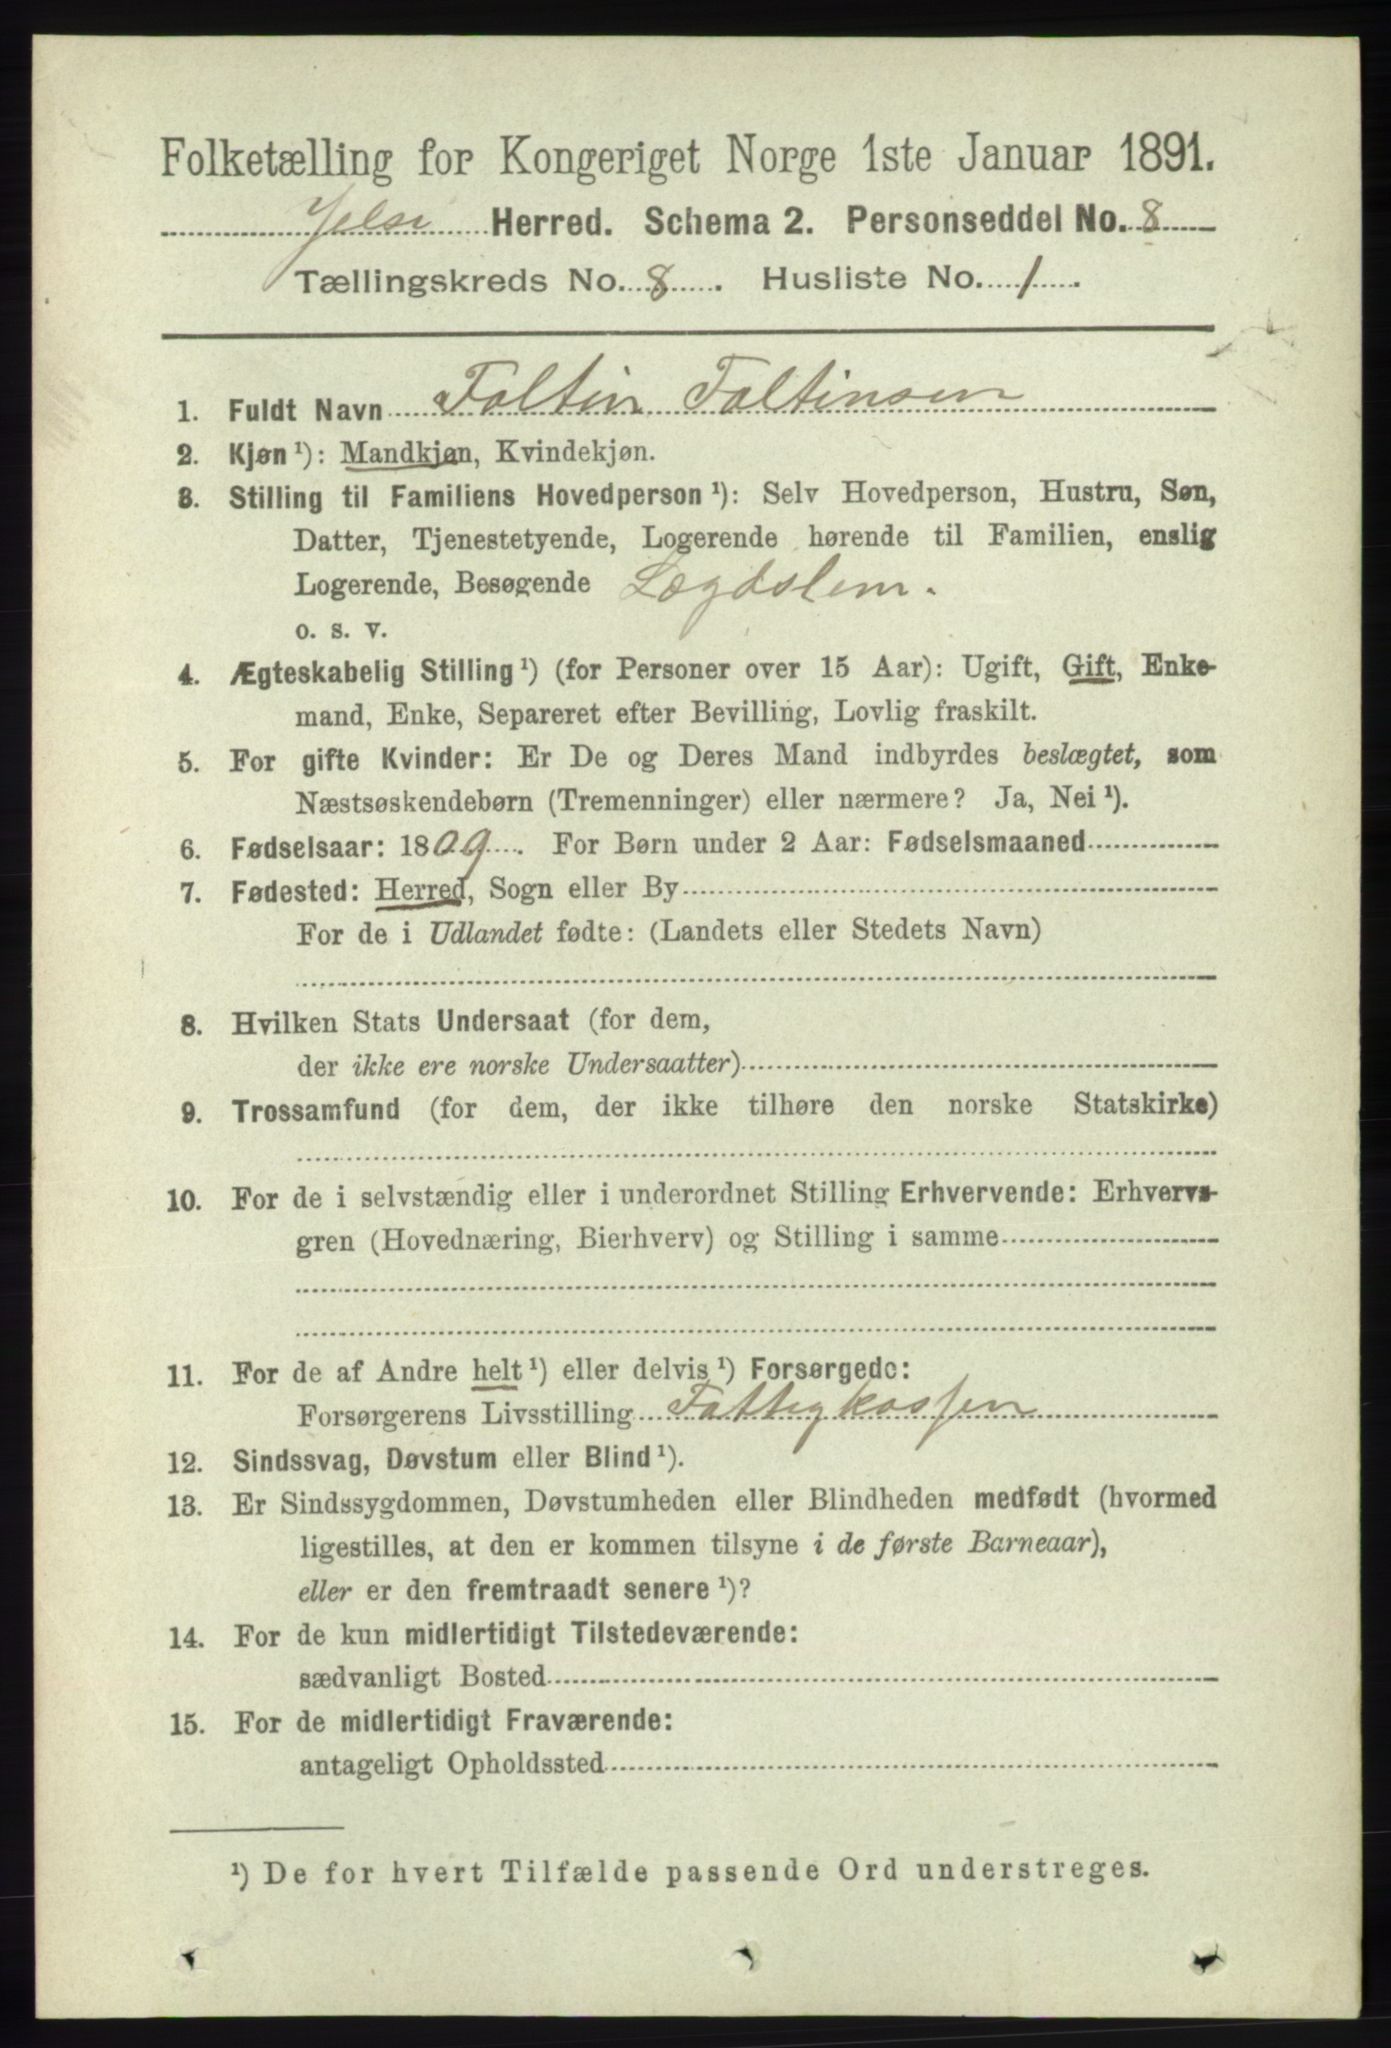 Folketælling for Kongeriget Norge 1ste Januar 1891.
Jelse Herred. Schema 2. Personseddel No. 8
Tællingskreds No. 8. Husliste No. 1.
1. Fuldt Navn Foltin Foltinsen
2. Kjøn ¹): Mandkjøn, Kvindekjøn.
3. Stilling til Familiens Hovedperson ¹): Selv Hovedperson, Hustru, Søn,
Datter, Tjenestetyende, Logerende hørende til Familien, enslig
Logerende, Besøgende Lægdslem.
o. s. v.
4. Ægteskabelig Stilling ¹) (for Personer over 15 Aar): Ugift, Gift, Enke-
mand, Enke, Separeret efter Bevilling, Lovlig fraskilt.
5. For gifte Kvinder: Er De og Deres Mand indbyrdes beslægtet, som
Næstsøskendebørn (Tremenninger) eller nærmere? Ja, Nei ¹).
6. Fødselsaar: 1809. For Børn under 2 Aar: Fødselsmaaned
7. Fødested: Herred, Sogn eller By
For de i Udlandet fødte: (Landets eller Stedets Navn)
8. Hvilken Stats Undersaat (for dem,
der ikke ere norske Undersaatter)
9. Trossamfund (for dem, der ikke tilhøre den norske Statskirke)
10. For de i selvstændig eller i underordnet Stilling Erhvervende: Erhvervs-
gren (Hovednæring, Bierhverv) og Stilling i samme
11. For de af Andre helt ¹) eller delvis ¹) Forsørgede:
Forsørgerens Livsstilling Fattigkassen
12. Sindssvag, Døvstum eller Blind ¹).
13. Er Sindssygdommen, Døvstumheden eller Blindheden medfødt (hvormed
ligestilles, at den er kommen tilsyne i de første Barneaar),
eller er den fremtraadt senere ¹)?
14. For de kun midlertidigt Tilstedeværende:
sædvanligt Bosted
15. For de midlertidigt Fraværende:
antageligt Opholdssted
¹) De for hvert Tilfælde passende Ord understreges.